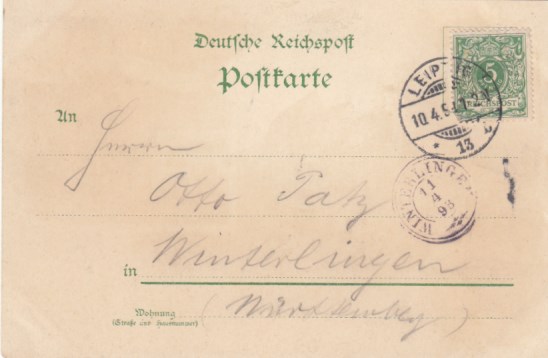 Deutsche Reichspost
Postkarte
5
REICHSPOST
LEIPZIG
10.4.9
13
An
Herrn
Otto Patz
WINTERLINGEN
11
4
98
in Winterlingen
Wohnung (Württemberg)
(Straße und Hausnummer)